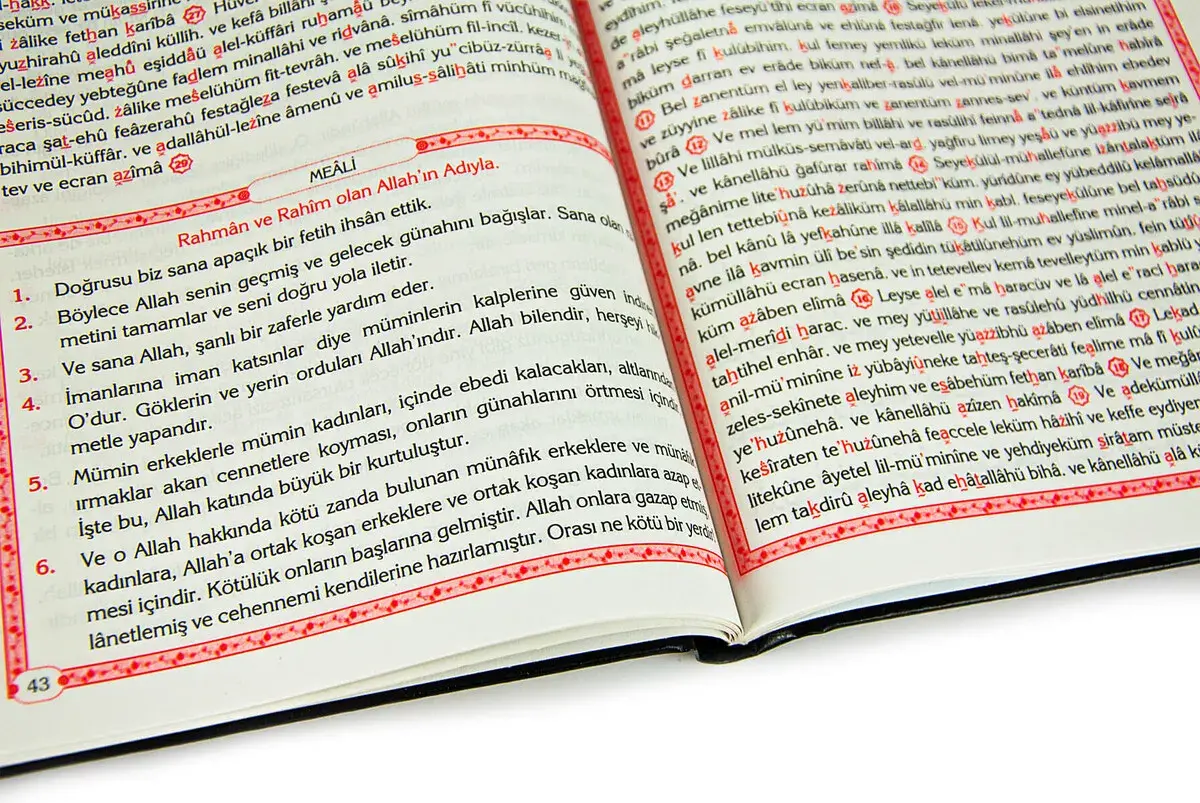 zâlike fethan karîbâ 27
yuzhirahû aleddîni küllih. ve kefâ billâhi
el-lezîne meahû eşiddâü alel-küffâri ruhamâü
süccedey yebteğûne fadlem minallâhi ve ridvânâ. sîmâhüm fî vücûhihim
eseris-sücûd. zâlike meselühüm fit-tevrâh. ve meselühüm fil-incîl. kezer
raca şat-ehû feâzerahû festağleza festevâ alâ sûkihî yu" cibüz-zürrâa li
bihimül-küffâr. ve adallâhül-lezîne âmenû ve amilus-sâlihâti minhüm
tev ve ecran azîmâ 29
MEÂLİ
Rahmân ve Rahîm olan Allah'ın Adıyla.
1. Doğrusu biz sana apaçık bir fetih ihsân ettik.
2. Böylece Allah senin geçmiş ve gelecek günahını bağışlar. Sana olan
metini tamamlar ve seni doğru yola iletir.
3. Ve sana Allah, şanlı bir zaferle yardım eder.
4. İmanlarına iman katsınlar diye müminlerin kalplerine güven
O'dur. Göklerin ve yerin orduları Allah'ındır. Allah bilendir, herşeyi
metle yapandır.
5. Mümin erkeklerle mümin kadınları, içinde ebedi kalacakları, altlarından
ırmaklar akan cennetlere koyması, onların günahlarını örtmesi içindir.
İşte bu, Allah katında büyük bir kurtuluştur.
6. Ve o Allah hakkında kötü zanda bulunan münâfık erkeklere ve münâfık
kadınlara, Allah'a ortak koşan erkeklere ve ortak koşan kadınlara azap et-
mesi içindir. Kötülük onların başlarına gelmiştir. Allah onlara gazap etmiş,
lânetlemiş ve cehennemi kendilerine hazırlamıştır. Orası ne kötü bir yerdir!
43
de aleyhüllâhe feseyü'tîhi ecran azîmâ 10 Seyekûlü
a"râbi şeğaletnâ emvâlünâ ve ehlûnâ festağfir lenâ. yekûlûne bi elsinetihim
mâ leyse fî kulûbihim. kul femey yemlikü leküm minallâhi şey'en in erâde
biküm darran ev erâde biküm nef-â. bel kânellâhü bimâ a"melûne habîrâ
11 Bel zanentüm el ley yenkaliber-rasûlü vel-mü'minûne ilâ ehlîhim ebedev
ve züyyine zâlike fî kulûbiküm ve zanentüm zannes-sev'. ve küntüm kavmem
bûrâ 12 Ve mel lem yü'mim billâhi ve rasûlihî feinnâ a'tednâ lil-kâfirîne seîrâ
13 Ve lillâhi mülküs-semâvâti vel-ard. yağfiru limey yeşâü ve yüazzibü mey ye-
şâ'. ve kânellâhü ğafûrar rahîmâ 14 Seyekûlül-mühallefûne izântalaktüm
meğânime lite'huzûhâ zerûnâ nettebi"küm. yürîdûne ey yübeddilû kelâmallâh
kul len tettebiûnâ kezâliküm kâlallâhü min kabl. feseyekûlûne bel tahsüdû
nâ. bel kânû lâ yefkahûne illâ kalîlâ 15 Kul lil-muhallefîne minel-a"râbi
avne ilâ kavmin ülî be'sin şedîdin tükâtilûnehüm ev yüslimûn. fein
kümüllâhü ecran hasenâ. ve in tetevellev kemâ tevelleytüm min kablü
küm azâben elîmâ 16 Leyse alel e"mâ haracüv ve lâ alel e"raci
alel-merîdi harac. ve mey yütiillâhe ve rasûlehû yüdhilhü cennâtin
tahtihel enhâr. ve mey yetevelle yüazzibhü azâben elîmâ 17
anil-mü'minîne iz yübâyiûneke tahteş-şecerâti fealime mâ fî
zeles-sekînete aleyhim ve esâbehüm fethan karîbâ 18
ye'huzûnehâ. ve kânellâhü azîzen hakîmâ 19
kesîraten te'huzûnehâ feaccele leküm hâzihî ve keffe
litekûne âyetel lil-mü'minîne ve yehdiyeküm sırâtam
lem takdirû aleyhâ kad ehâtallâhü bihâ. ve kânellâhü alâ